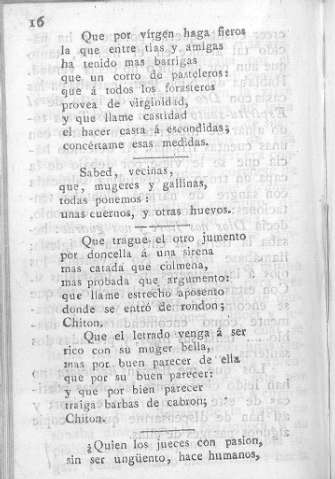 16
Que por vírgen haga fieros
la que entre tias y amigas
ha tenido mas barrigas
que un corro de pasteleros:
que á todos los forasteros
provea de virginidad,
y que llame castidad
el hacer casta á escondidas;
concértame esas medidas.
Sabed, vecinas,
que, mugeres y gallinas,
todas ponemos:
unas cuernos, y otras huevos.
Que trague el otro jumento
por doncella á una sirena
mas catada que colmena,
mas probada que argumento:
que llame estrecho aposento
donde se entró de rondon;
Chiton.
Que el letrado venga á ser
rico con su muger bella,
mas por buen parecer de ella
que por su buen parecer:
y que por bien parecer
traiga barbas de cabron;
Chiton.
¿Quien los jueces con pasion,
sin ser ungüento, hace humanos,